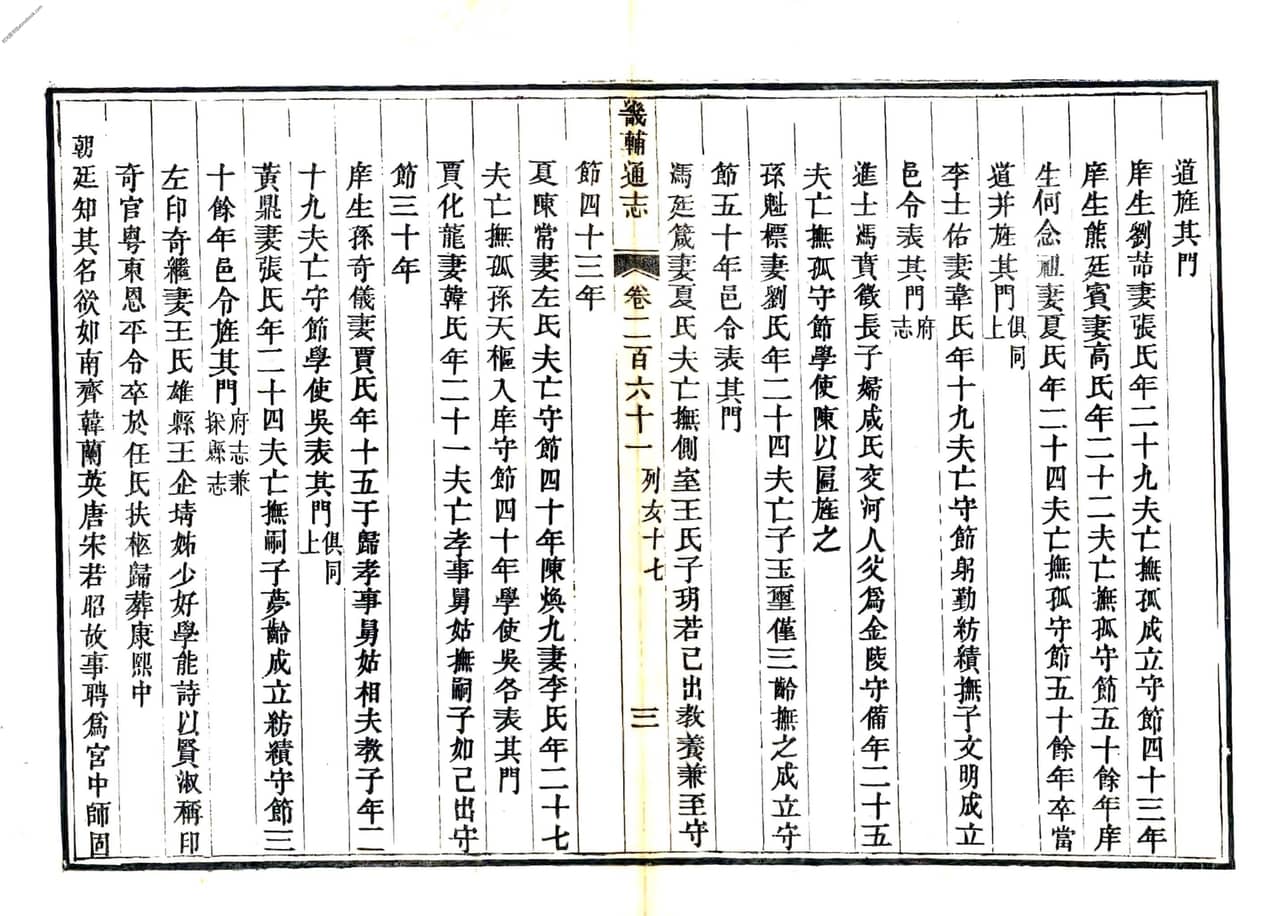 道旌其門
庠生劉喆妻張氏年二十九夫亡撫孤成立守節四十三年
庠生熊廷賓妻高氏年二十二夫亡撫孤守節五十餘年庠
生何念祖妻夏氏年二十四夫亡撫孤守節五十餘年卒當
道并旌其門俱同上
李士佑妻韋氏年十九夫亡守節躬勤紡績撫子文明成立
邑令表其門府志
進士馮賁徵長子婦咸氏交河人父爲金陵守備年二十五
夫亡撫孤守節學使陳以匾旌之
孫魁標妻劉氏年二十四夫亡子玉璽僅三齡撫之成立守
節五十年邑令表其門
馮廷箴妻夏氏夫亡撫側室王氏子玥若己出教養兼至守
畿輔通志 卷二百六十一 列女十七 三
節四十三年
夏陳常妻左氏夫亡守節四十年陳煥九妻李氏年二十七
夫亡撫孤孫天樞入庠守節四十年學使吳各表其門
賈化龍妻韓氏年二十一夫亡孝事舅姑撫嗣子如己出守
節三十年
庠生孫奇儀妻賈氏年十五于歸孝事舅姑相夫教子年二
十九夫亡守節學使吳表其門俱同上
黃鼎妻張氏年二十四夫亡撫嗣子夢齡成立紡績守節三
十餘年邑令旌其門府志兼採縣志
左印奇繼妻王氏雄縣王企埥姊少好學能詩以賢淑稱印
奇官粵東恩平令卒於任氏扶柩歸葬康熙中
朝廷知其名欲如南齊韓蘭英唐宋若昭故事聘爲宮中師固